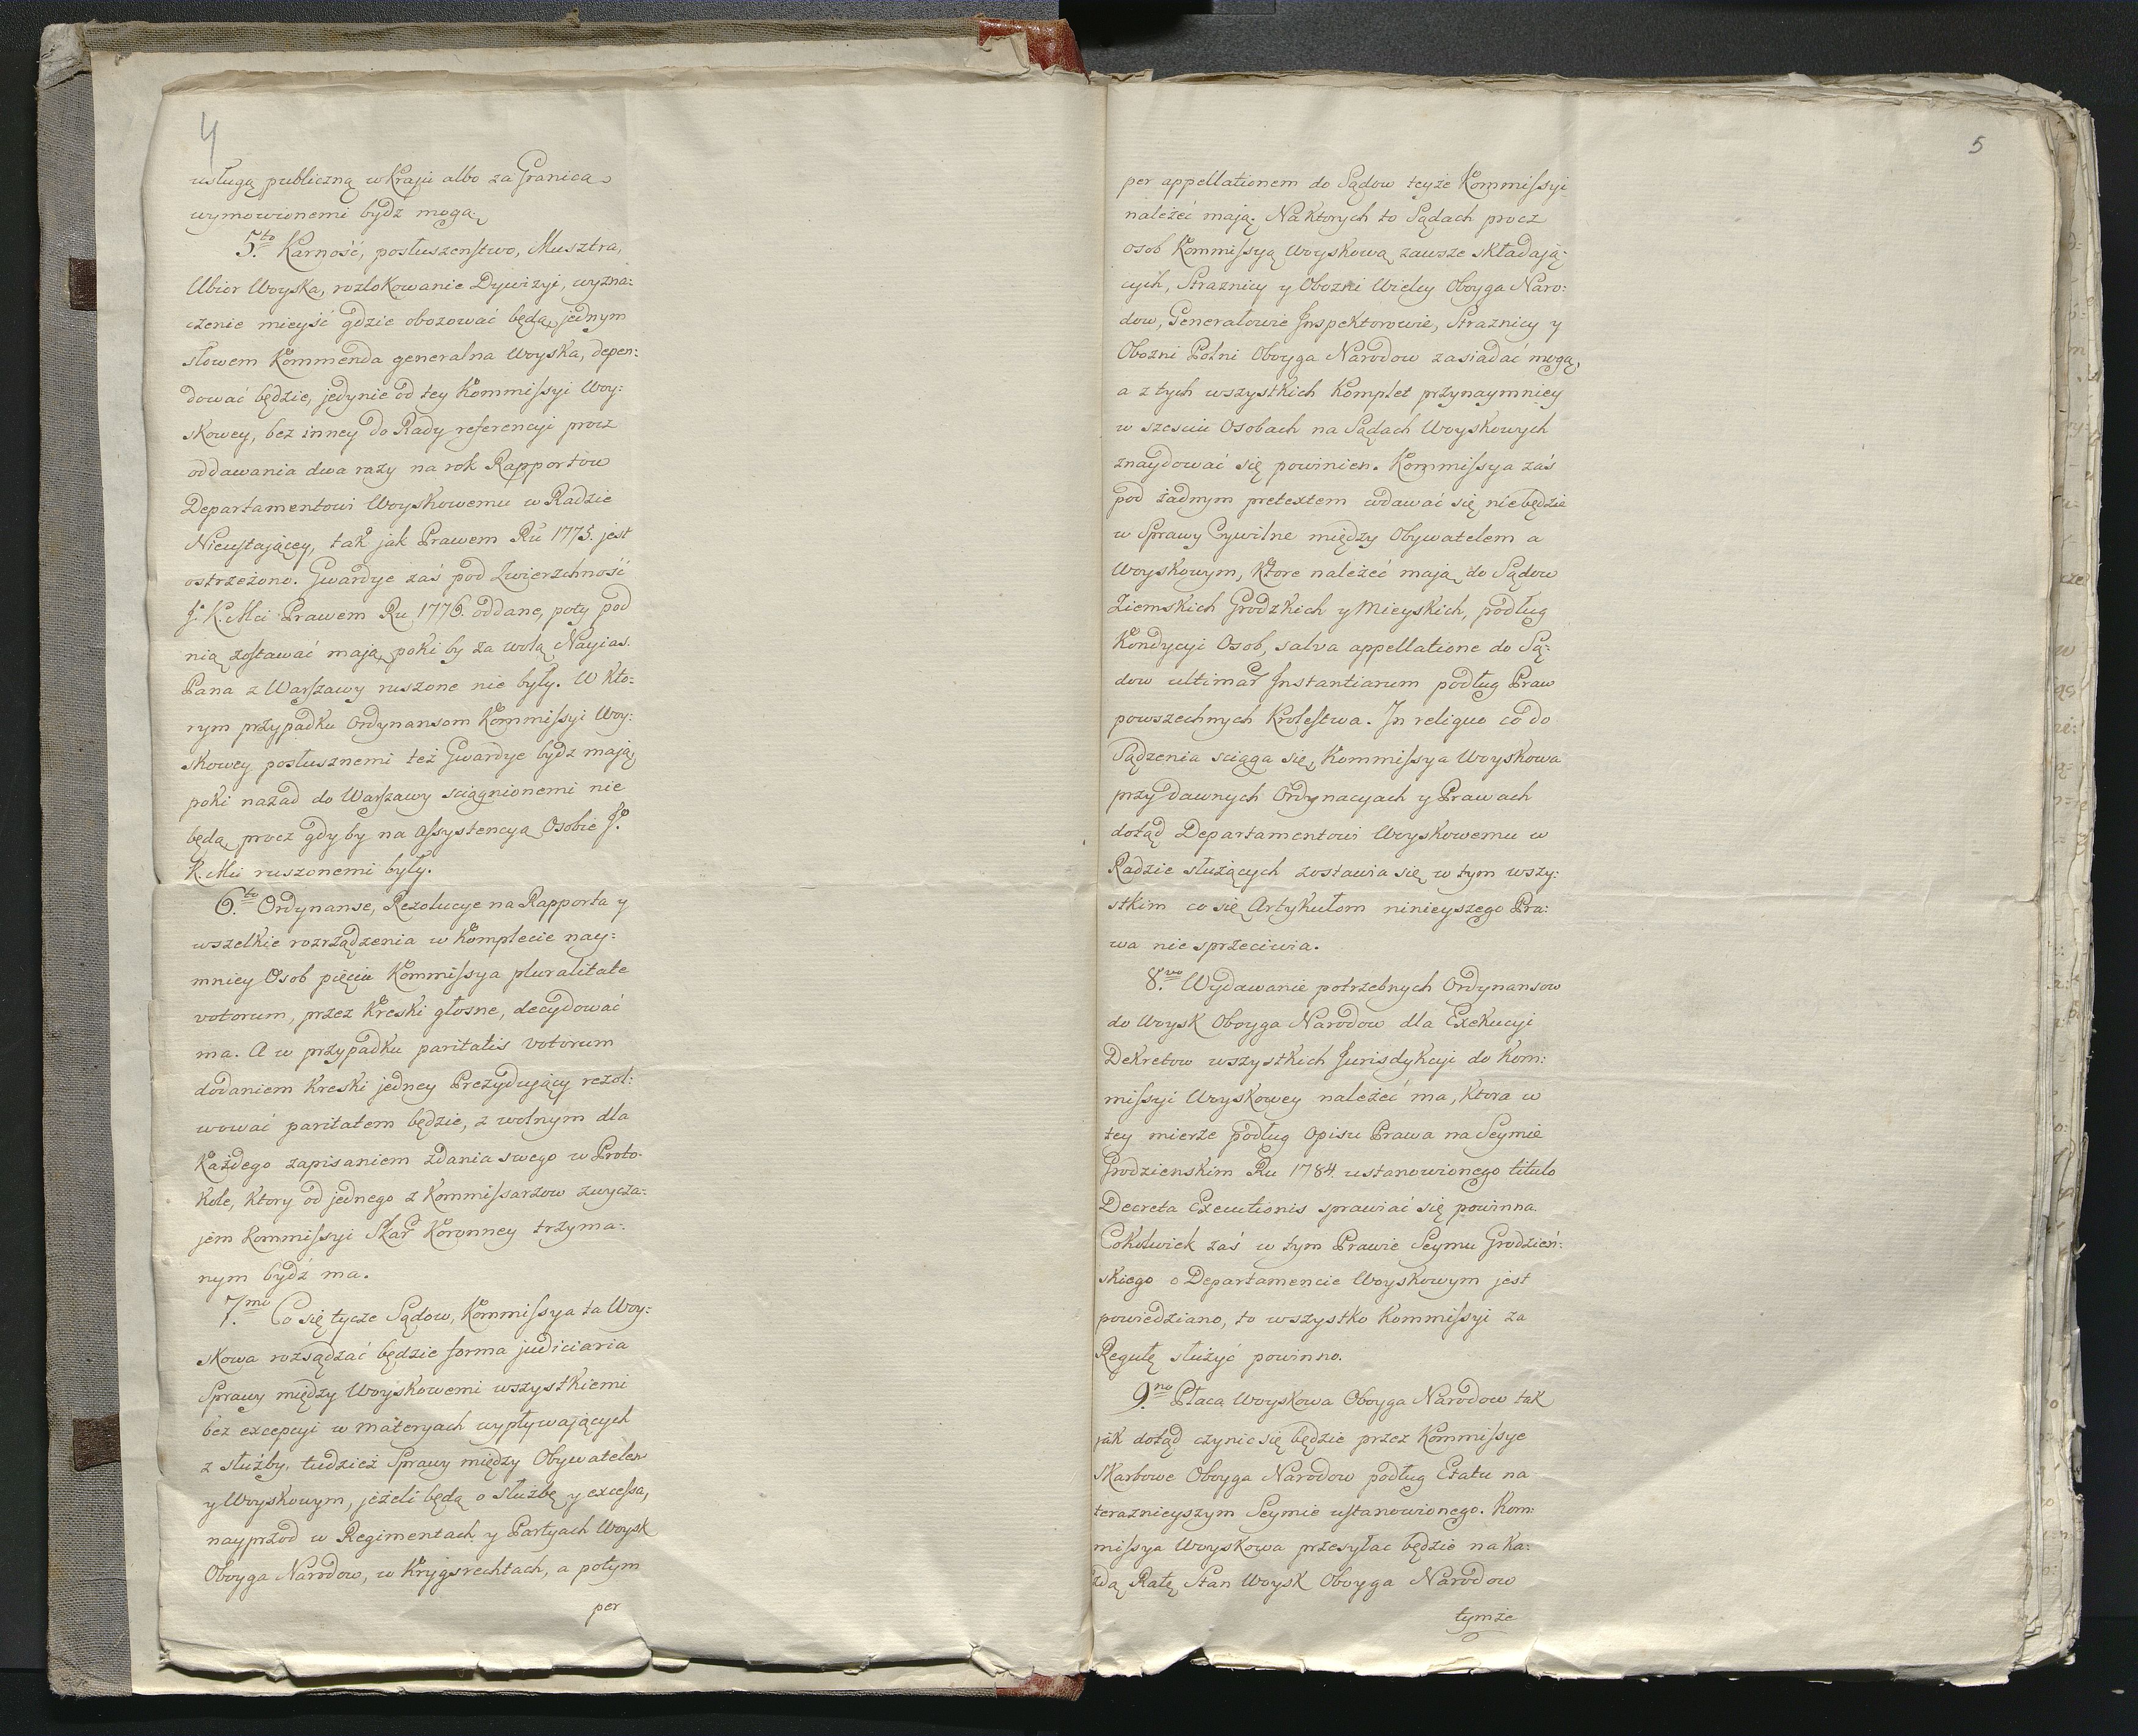 4
usługą publiczną w Kraju albo za Granicą
wymowionemi bydź mogą.
5.to Karność, posłuszenstwo, Musztra,
Ubior Woyska, rozlokowanie Dywizyi, wyzna:
czenie mieyść gdzie obozować będą, jednym
słowem Kommenda generalna Woyska, depen:
dować będzie, jedynie od tey Kommissyi Woy:
skowey, bez inney do Rady referencyi procz
oddawania dwa razy na rok Rapportow
Departamentowi Woyskowemu w Radzie
Nieustającey, tak jak Prawem Ru 1775. jest
ostrzeżono. Gwardye zaś pod Zwierzchność
J. K. Mci Prawem Ru 1776. oddane, poty pod
nią zostawać mają, poki by za wolą Nayias.
Pana z Warszawy ruszone nie były. W kto:
rym przypadku Ordynansom Kommissyi Woy:
skowey posłusznemi też Gwardye bydz mają,
poki nazad do Warszawy sciągnionemi nie
będą, procz gdyby na Assystencyą Osobie J.
K. Mci ruszonemi były.
6.to Ordynanse, Rezolucye na Rapporta y
wszelkie rozrządzenia w Komplecie nay:
mniey Osob pięciu Kommissya pluralitate
votorum, przez Kreski głosne, decydować
ma. A w przypadku paritatis votorum
dodaniem Kreski jedney Prezydujący rezol:
wować paritatem będzie, z wolnym dla
Każdego zapisaniem zdania swego w Proto-
kole, Ktory od jednego z Kommissarzow zwycza:
jem Kommissyi Skar Koronney trzyma:
nym bydź ma.
7.mo Co się tycze Sądow, Kommissya ta Woy:
skowa rozsądzać będzie forma judiciaria
Sprawy między Woyskowemi wszystkiemi
bez excepcyi w materyach wypływających
z służby, tudzież Sprawy między Obywatelem
y Woyskowym, jeżeli będą o służbę y excessa,
nayprzod w Regimentach y Partyach Woysk
Oboyga Narodow, w Krygsrechtach, a potym
per
5
per appellationem do Sądow teyże Kommissyi
należeć mają. Na ktorych to Sądach procz
osob Kommissyą Woyskową zawsze składają:
cych, Straznicy y Obozni Wielcy Oboyga Naro:
dow, Generałowie Inspektorowie, Straznicy y
Obozni Polni Oboyga Narodow zasiadać mogą,
a z tych wszystkich Komplet przynaymniey
w szesciu Osobach na Sądach Woyskowych
znaydować się powinien. Kommissya zaś
pod żadnym pretextem wdawać się nie będzie
w Sprawy Cywilne między Obywatelem a
Woyskowym, Ktore należeć mają do Sądow
Ziemskich Grodzkich y Mieyskich, podług
Kondycyi Osob, salva appellatione do Są:
dow ultimar Instantiarum podług Praw
powszechnych Krolestwa. In reliquo co do
Sądzenia sciąga się, Kommissya Woyskowa
przy dawnych Ordynacyach y Prawach
dotąd Departamentowi Woyskowemu w
Radzie służących zostawia się w tym wszy:
stkim co się Artykułom ninieyszego Pra:
wa nie sprzeciwia.
8.vo Wydawanie potrzebnych Ordynansow
do Woysk Oboyga Narodow dla Exekucyi
Dekretow wszystkich Jurisdykcyi do Kom:
missyi Woyskowey należeć ma, Ktora w
tey mierze podług Opisu Prawa na Seymie
Grodzienskim Ru 1784. ustanowionego titulo
Decreta Executionis sprawiać się powinna.
Cokolwiek zaś w tym Prawie Seymu Grodzień:
skiego o Departamencie Woyskowym jest
powiedziano, to wszystko Kommissyi za
Regułę służyć powinno.
9.no Płaca Woyskowa Oboyga Narodow tak
jak dotąd czynic się będzie przez Kommissye
Skarbowe Oboyga Narodow podług Etatu na
teraznieyszym Seymie ustanowionego. Kom:
missya Woyskowa przesyłac będzie na Ka:
żdą Ratę Stan Woysk Oboyga Narodow
tymże